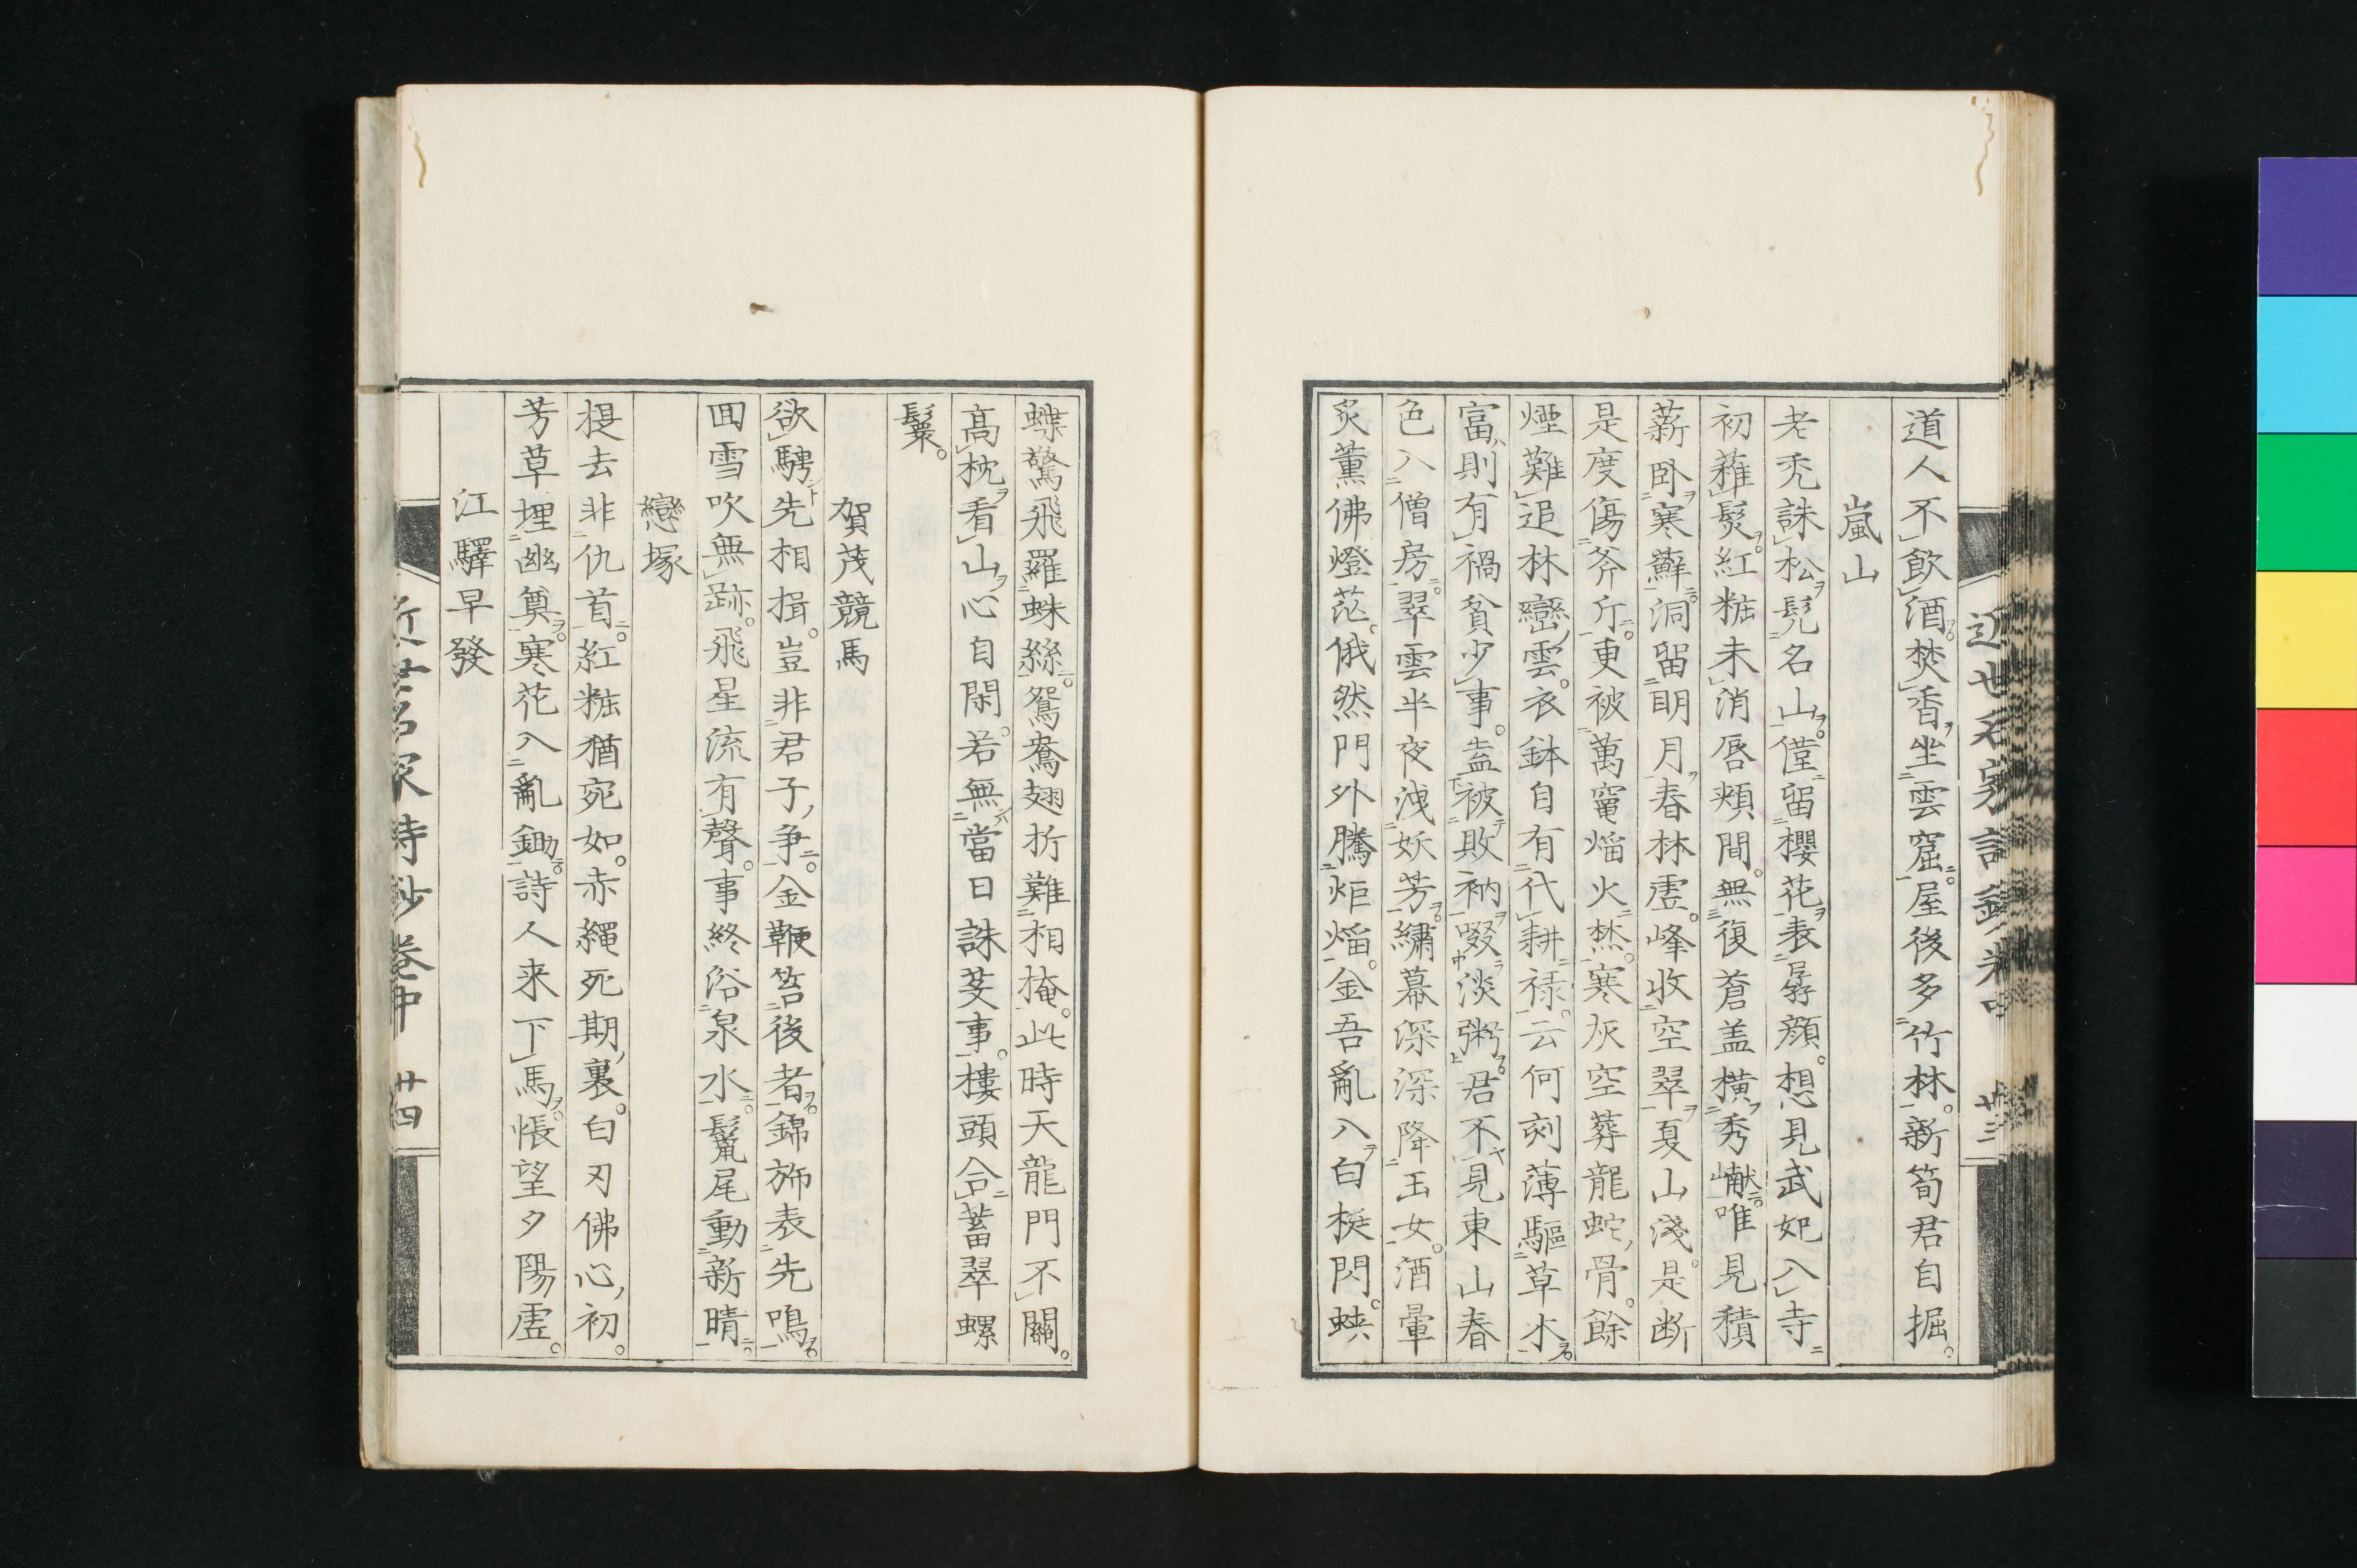 道人不飲酒焚香坐雲窟。屋後多竹林。新筍君自掘。
嵐山
老禿誅松髡名山。僅留櫻花表孱顔。想見武妃入寺
初。薙髮紅粧未消唇頬間。無復蒼盖横秀巘。唯見積
薪卧寒蘚。洞留明月春林虚。峰收空翠夏山淺。是断
是度傷斧斤。更被萬竃熖火焚。寒灰空葬龍蛇骨。餘
煙難追林巒雲。衣鉢自有代耕禄。云何刻薄驅草木。
富則有禍貧少事。盍被敗衲啜淡粥。君不見東山春
色入僧房。翠雲半夜洩妖芳。繡幕深深降玉女。酒暈
炙薫佛燈茫。俄然門外騰炬熖。金吾亂入白梃閃。蛺
近世名家詩鈔卷中 廿三
蝶驚飛羅蛛絲。鴛鴦翅折難相掩。此時天龍門不關。
高枕看山心自閑。若無當日誅芟事。樓頭合蓄翠螺
鬟。
賀茂競馬
欲騁先相揖。豈非君子争。金鞭笞後者。錦斾表先鳴。
囬雪吹無跡。飛星流有聲。事終浴泉水。鬣尾動新晴。
戀塚
提去非仇首。紅粧猶宛如。赤繩死期裏。白刃佛心初。
芳草埋幽奠。寒花入亂鋤。詩人来下馬。悵望夕陽虚。
江驛早發
近世名家詩鈔卷中 廿四